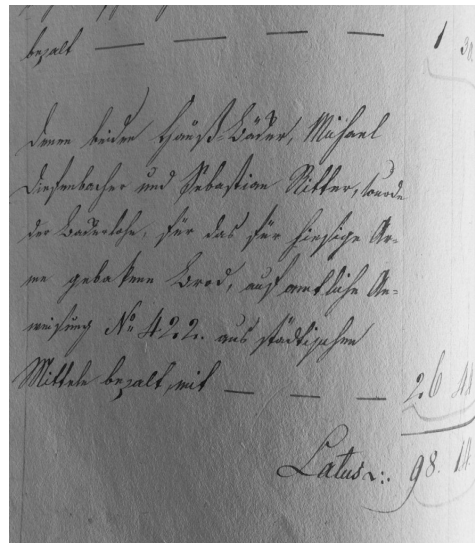 bezalt — — — — 1 30
Denen beiden Hauß-Bäcker, Michael
Diefenbacher und Sebastian Ritter, wurde
der Backerlohn, für das für hiesige Ar-
me gebakene Brod, auf amtliche An-
weisung No 422. aus städtischen
Mitteln bezalt, mit — — — 26
Latus:. 98.